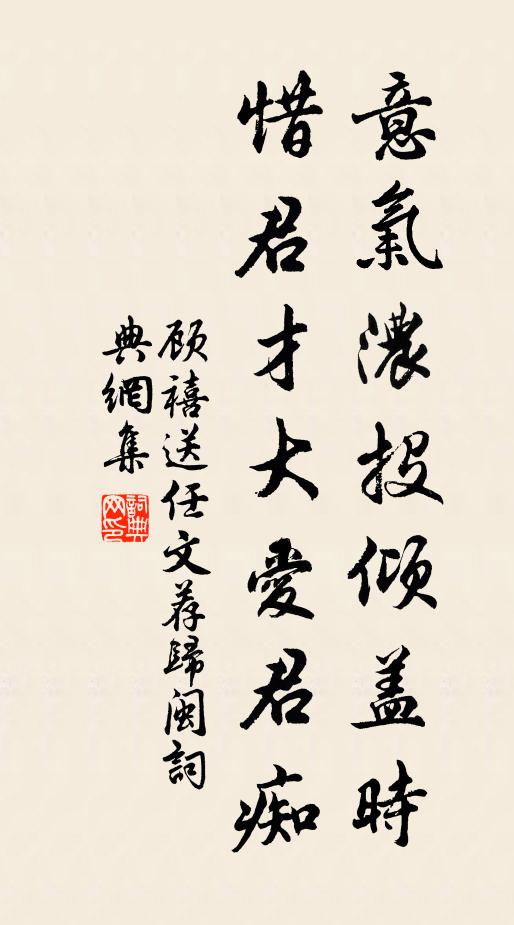 意氣濃投傾盖時
惜君才大愛君痴
顾禧送任文荐歸閩詞
典網集
詞典網印